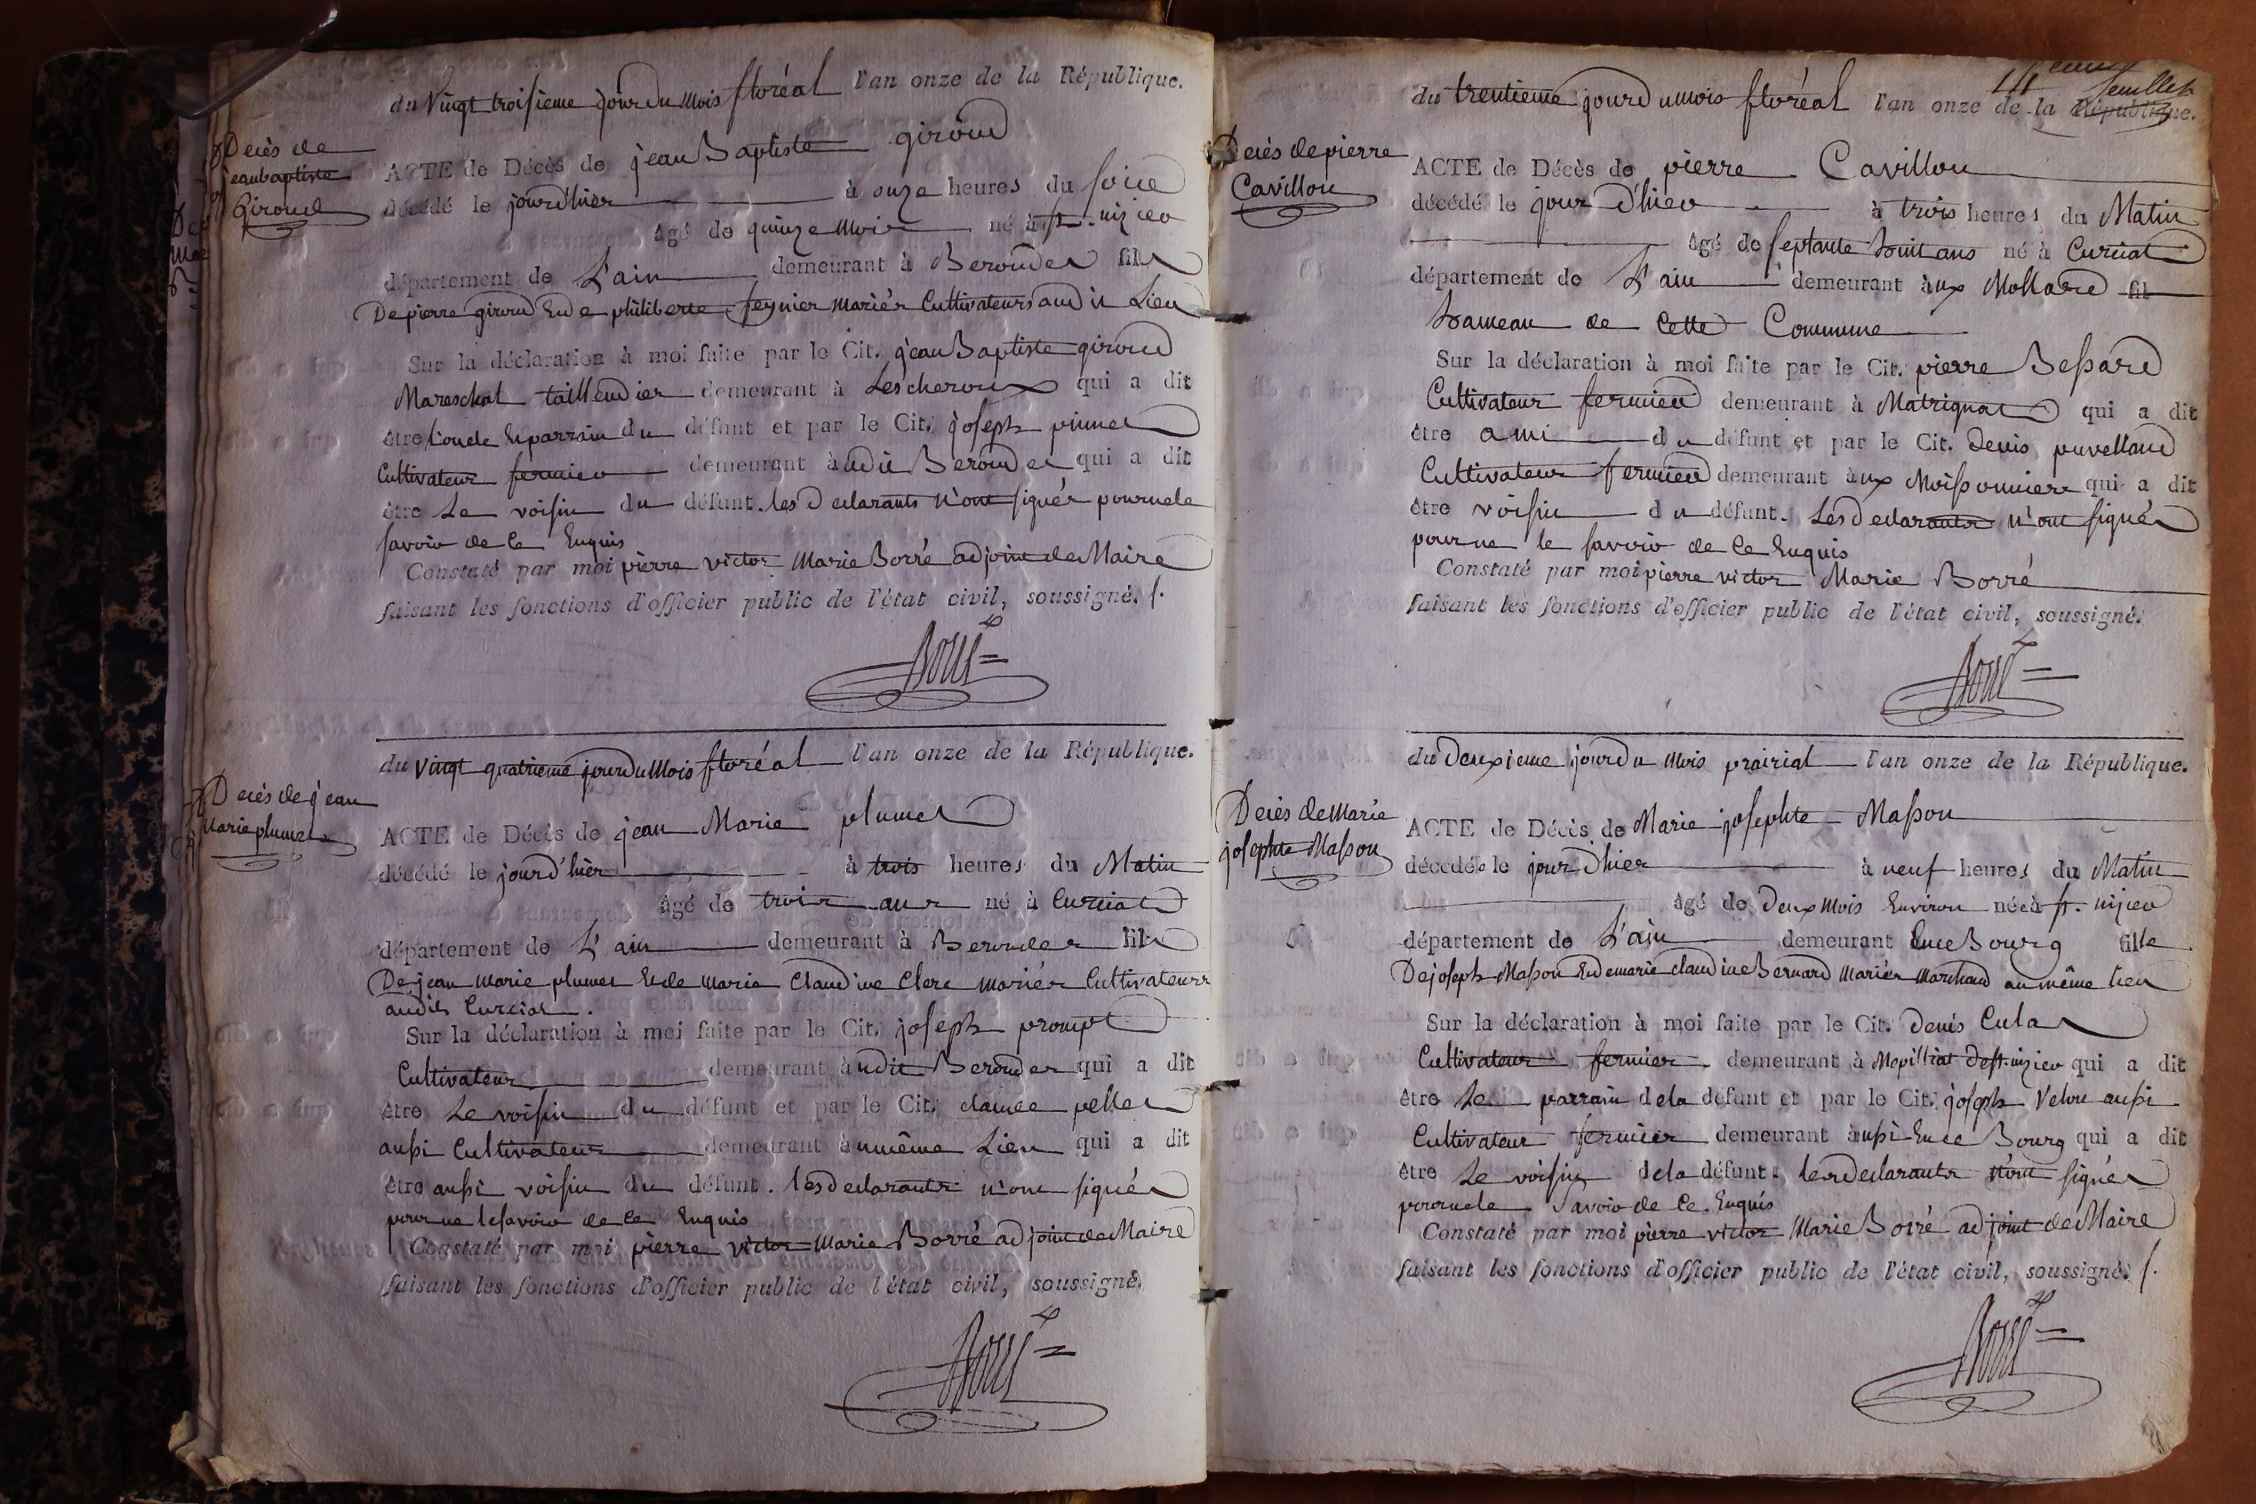 du Vingt troisieme jour du mois floréal l'an onze de la République.
Decès de
jean baptiste
Giroud
ACTE de Décès de jean Baptiste giroud
décédé le jour d'hier à onze heures du soire
âgé de quinze mois né à st. nizier
département de L'ain demeurant à Beroudes fils
De pierre giroud Et De philiberte feynier mariés Cultivateurs audit Lieu
Sur la déclaration à moi faite par le Cit. jean Baptiste giroud
Mareschal taillendier demeurant à Lescheroux qui a dit
être l'oncle Et parrain du défunt et par le Cit. joseph
Cultivateur fermier demeurant àudit Beroudes qui a dit
être Le voisin du défunt. les Declarants n'ont signés pour ne le
savoir de ce Enquis
Constaté par moi pierre victor Marie Borré adjoint de Maire
faisant les fonctions d'officier public de l'état civil, soussigné.
Borré
du Vingt quatrieme jour du Mois floréal l'an onze de la République.
Decès de jean
Marie plumet
ACTE de Décès de jean Marie plumet
décédé le jour d'hièr à trois heures du Matin
âgé de trois ans né à Curciat
département de L'ain demeurant à Beroudes fils
De jean marie plumet Et de marie Claudine Clerc mariés Cultivateurs
audit Curciat.
Sur la déclaration à moi faite par le Cit. joseph prompt
Cultivateur demeurant àudit Beroudes qui a dit
être Le voisin du défunt et par le Cit.
aussi Cultivateur demeurant àu même Lieu qui a dit
être aussi voisin du défunt. les declarants n'ont signés
pour ne le savoir de ce Enquis
Constaté par moi pierre victor Marie Borré adjoint de Maire
faisant les fonctions d'officier public de l'état civil, soussigné.
Borré
feuillet
du trentieme jour du mois floréal l'an onze de la République.
Decès de pierre
Cavillon
ACTE de Décès de pierre Cavillon
décédé le jour D'hier à trois heures du Matin
âgé de septante huit ans né à Curciat
département de L'ain demeurant àux Mollard fil
hameau de Cette Commune
Sur la déclaration à moi faite par le Cit. pierre Bessard
Cultivateur fermier demeurant à Matrignat qui a dit
être ami du défunt et par le Cit. Denis puvelland
Cultivateur fermier demeurant àux Moissonniers qui a dit
être voisin du défunt. Les Declarants n'ont signés
pour ne le savoir de Ce Enquis
Constaté par moi pierre victor Marie Borré
faisant les fonctions d'officier public de l'état civil, soussigné.
Borré
du Deuxieme jour du mois prairial l'an onze de la République.
Decès de Marie
josephte Masson
ACTE de Décès de Marie josephte Masson
décédée le jour D'hier à neuf heures du Matin
âgé de Deux Mois Environ née à st. nizier
département de L'ain demeurant En ce Bourg fille
De joseph Masson Et de marie claudine Bernard Mariés Marchand au même lieu
Sur la déclaration à moi faite par le Cit. Denis Culas
Cultivateur fermier demeurant à Mepilliat De st. nizier qui a dit
être Le parrain de la défunt et par le Cit. joseph Velon aussi
Cultivateur fermier demeurant àussi En ce Bourg qui a dit
être Le voisin de la défunt. les declarants n'ont signés
pour ne le Savoir de Ce Enquis
Constaté par moi pierre victor Marie Borré adjoint de Maire
faisant les fonctions d'officier public de l'état civil, soussigné.
Borré